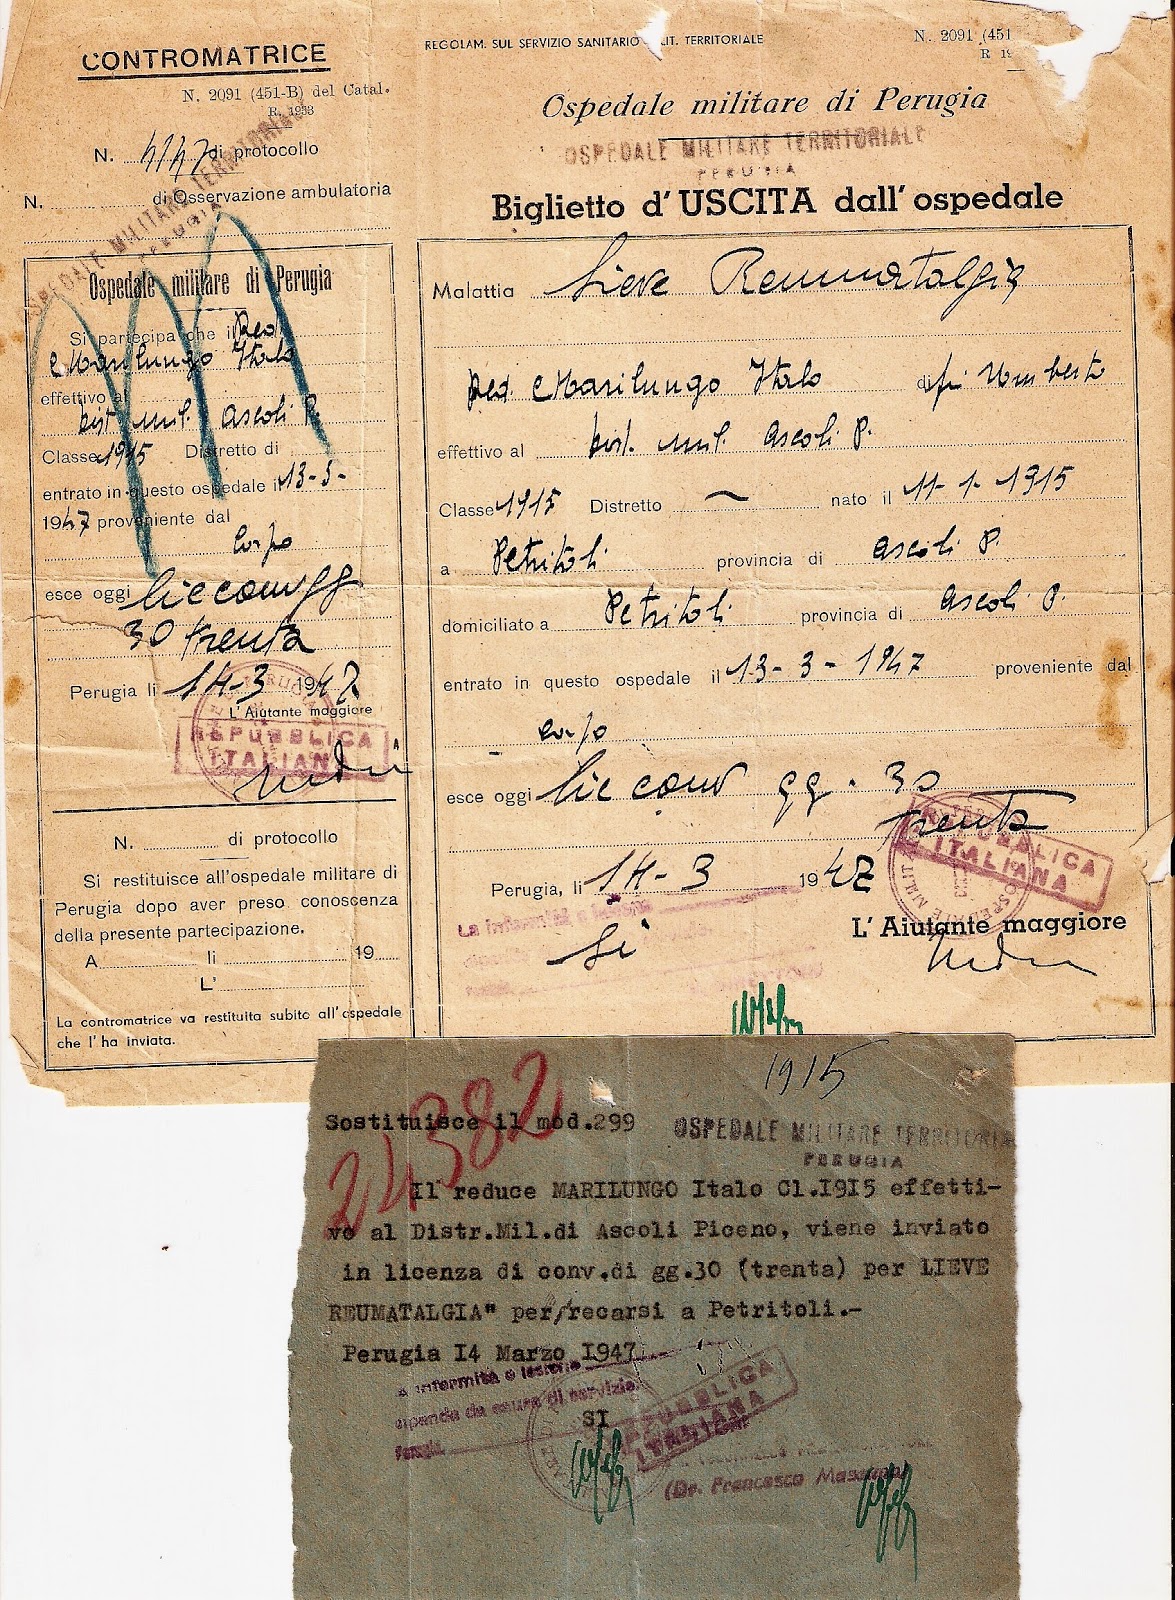 CONTROMATRICE
N. 2091 (451-B) del Catal.
R. 1953
N. 4147 di protocollo
N. di Osservazione ambulatoria
OSPEDALE MILITARE TERRITORIALE
PERUGIA
Ospedale militare di Perugia
Si partecipa che il Red.
Marilungo Italo
effettivo al
Dist. Mil. Ascoli P.
Classe 1915 Distretto di
entrato in questo ospedale il 13-3-
1947 proveniente dal
Corpo
esce oggi lic conv gg
30 trenta
Perugia li 14-3 1947
L' Aiutante maggiore
REPUBBLICA
ITALIANA
N. di protocollo
Si restituisce all'ospedale militare di
Perugia dopo aver preso conoscenza
della presente partecipazione.
A li 19
L'
La contromatrice va restituita subito all' ospedale
che l' ha inviata.
REGOLAM. SUL SERVIZIO SANITARIO MILIT. TERRITORIALE
N. 2091 (451
R 19
Ospedale militare di Perugia
OSPEDALE MILITARE TERRITORIALE
PERUGIA
Biglietto d' USCITA dall' ospedale
Malattia Lieve Reumatalgia
Red. Marilungo Italo di fu Umberto
effettivo al Dist. Mil. Ascoli P.
Classe 1915 Distretto ~ nato il 11-1-1915
a Petritoli provincia di Ascoli P.
domiciliato a Petritoli provincia di Ascoli P.
entrato in questo ospedale il 13-3-1947 proveniente dal
corpo
esce oggi lic conv gg. 30
trenta
REPUBBLICA
ITALIANA
Perugia, li 14-3 1947
La infermità o lesione
Si
L' Aiutante maggiore
1915
Sostituisce il mod.299
24382
OSPEDALE MILITARE TERRITORIALE
PERUGIA
Il reduce MARILUNGO Italo Cl.1915 effetti-
vo al Distr.Mil.di Ascoli Piceno, viene inviato
in licenza di conv.di gg.30 (trenta) per LIEVE
REUMATALGIA" per/recarsi a Petritoli.-
Perugia 14 Marzo 1947
a infermità o lesione
dipende da causa di servizio
SI
Perugia
REPUBBLICA
ITALIANA
(Dr. Francesco